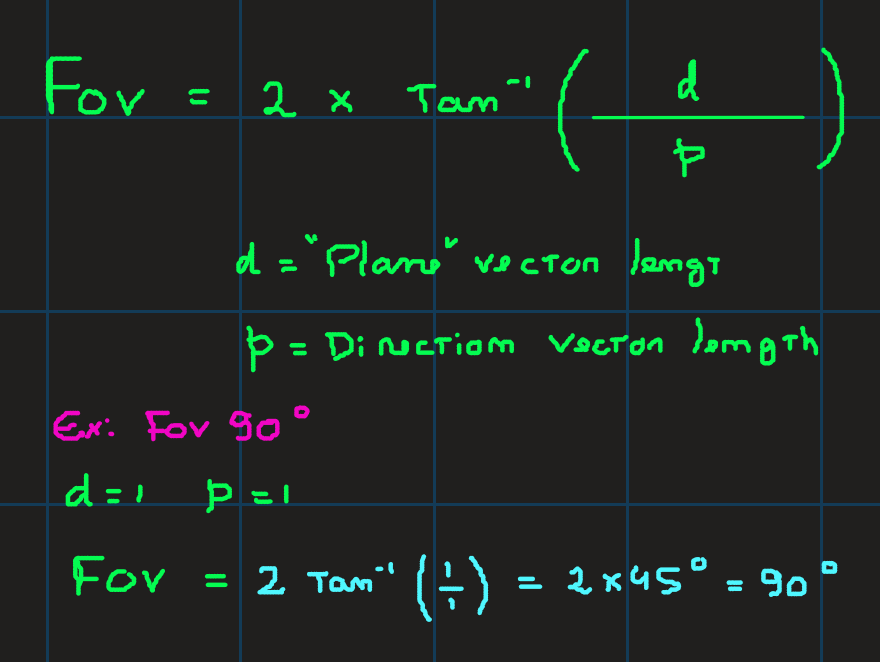 Fov = 2 x Tan⁻¹ ( d / p )
d = "Plane" vector lengt
p = Direction vector length
Ex: Fov 90°
d = 1 p = 1
Fov = 2 Tan⁻¹ (1/1) = 2 x 45° = 90°